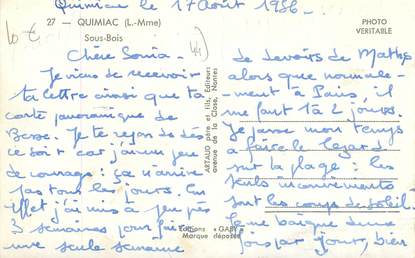 Quimiac le 17 Août 1956 -
27 — QUIMIAC (L.-Mme)
Sous-Bois
PHOTO
VERITABLE
10 €
44
Chère Sonia -
Je viens de recevoir
ta lettre ainsi que ta
carte panoramique de
Besse. Je te réponds dès
ce soir car j'ai un peu
de courage : ça n'arrive
pas tous les jours. En
effet j'ai mis à peu près
3 semaines pour faire
une seule semaine
ARTAUD père et fils, Editeurs
avenue de la Close, Nantes
Editions « GABY »
Marque déposée
de devoirs de Maths
alors que normale-
ment à Paris, il
me faut 1 à 2 jours.
Je passe mon temps
à faire le lézard
sur la plage : les
seuls inconvénients
sont les coups de soleil.
Je me baigne deux
fois par jour, bien